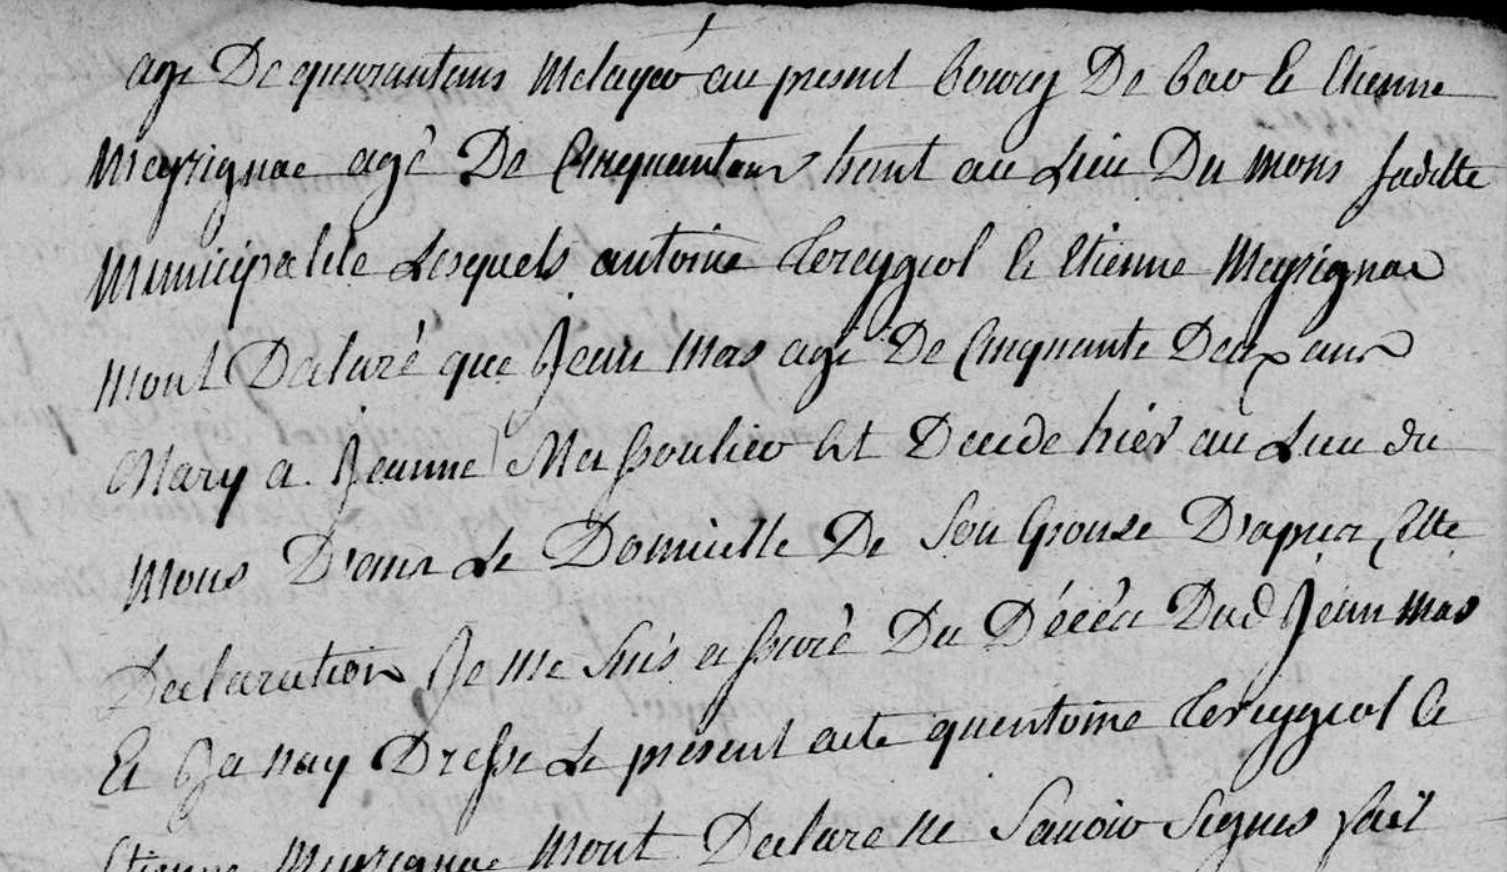 agé De quarantans Metayé au present bourg De bar Et Etienne
Meyrignac agé De Cinquantans habnt au Lieu Du mons fadette
Municipalité Lesquels antoine Tereygeol Et Etienne Meyrignac
mont Declaré que Jean mas agé De Cinquante Deux ans
Mary a Jeanne Massoulier Et Decede hier au Lieu du
mons Dans Le Domicille De Son Epouse Dapres Cette
Declaration Je me Suis assuré Du Décés Dud Jean mas
Et Jenay Dressé Le present acte quentoine Tereygeol Et
Etienne Meyrignac mont Declare ne Savoir Signes fait